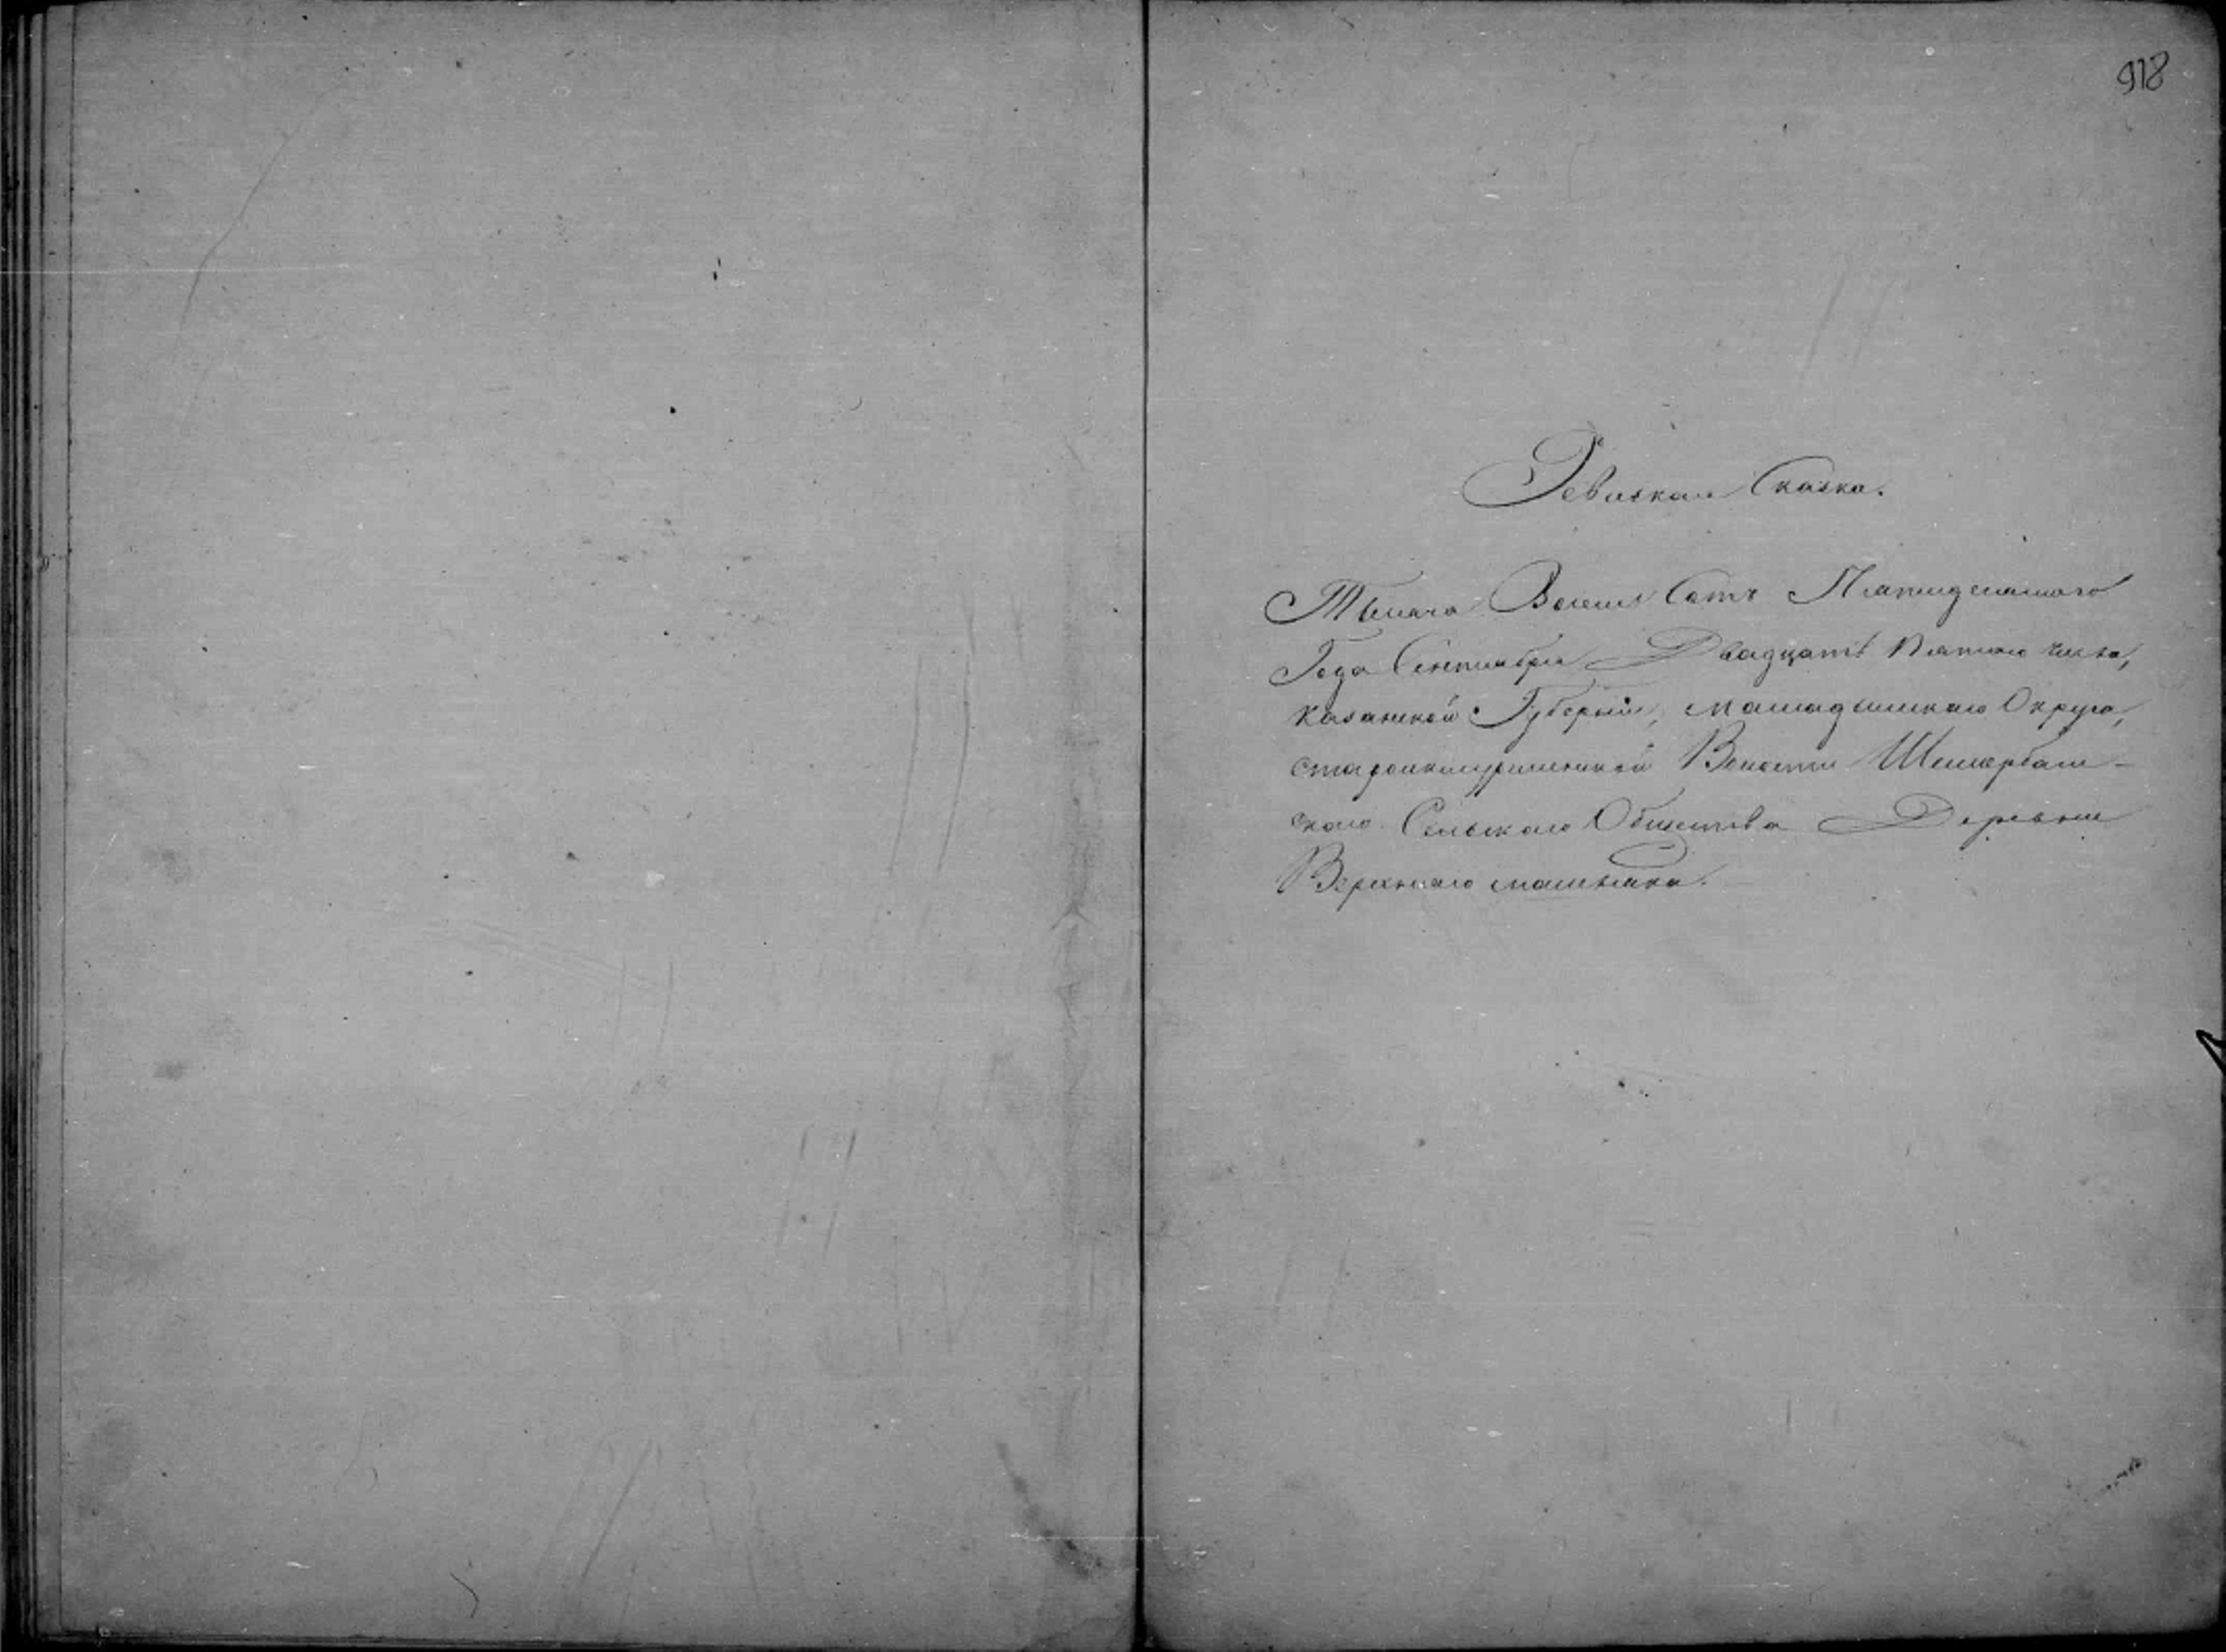 918
Ревизкая Сказка.
Тысяча Восемь Сотъ Пятидесятаго
Года Сентября Двадцать Пятаго числа,
казанской Губерніи, мамадышскаго Округа,
Волости Шемербаш-
скаго Сельскаго Общества Деревни
Верхняго